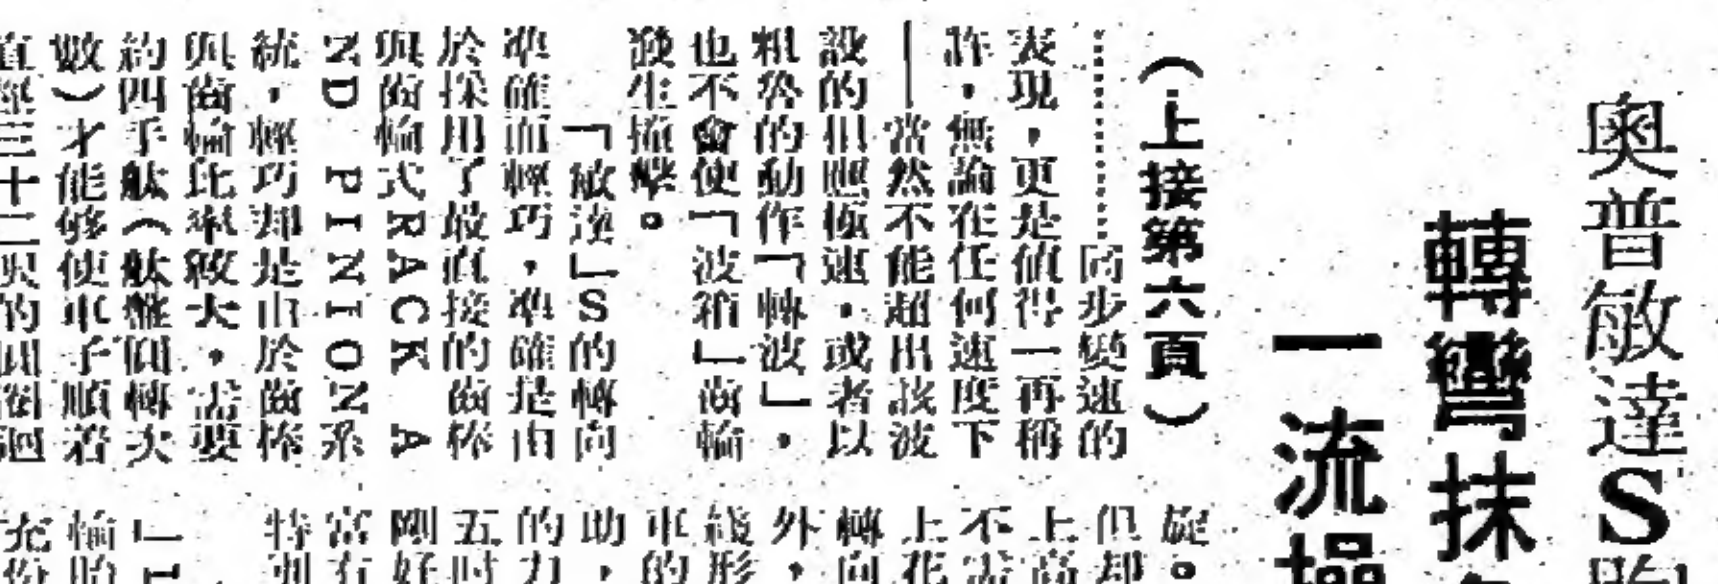 奧普敏達S
轉彎抹
一流操
（上接第六頁）
……同步變速的
表現，更是值得一再稱
許，無論在任何速度下
—當然不能超出該波
設的相應極速，或者以
粗劣的動作「轉波」，
也不會使「波箱」齒輪
發生撞擊。
「敏達」S的轉向
準確而輕巧，準確是由
於採用了最直接的齒棒
與齒輪式RACK A
ND PINION系
統，輕巧却是由於齒棒
與齒輪比率較大，需要
約四手舦（舦盤個轉次
數）才能够使車子順着
直徑三十二呎的圓圈迴
旋。
但却
上高
不需
上花
轉向
外，
綫形
車的
助，
的力
五時
剛好
當有
特別
輪胎
充份